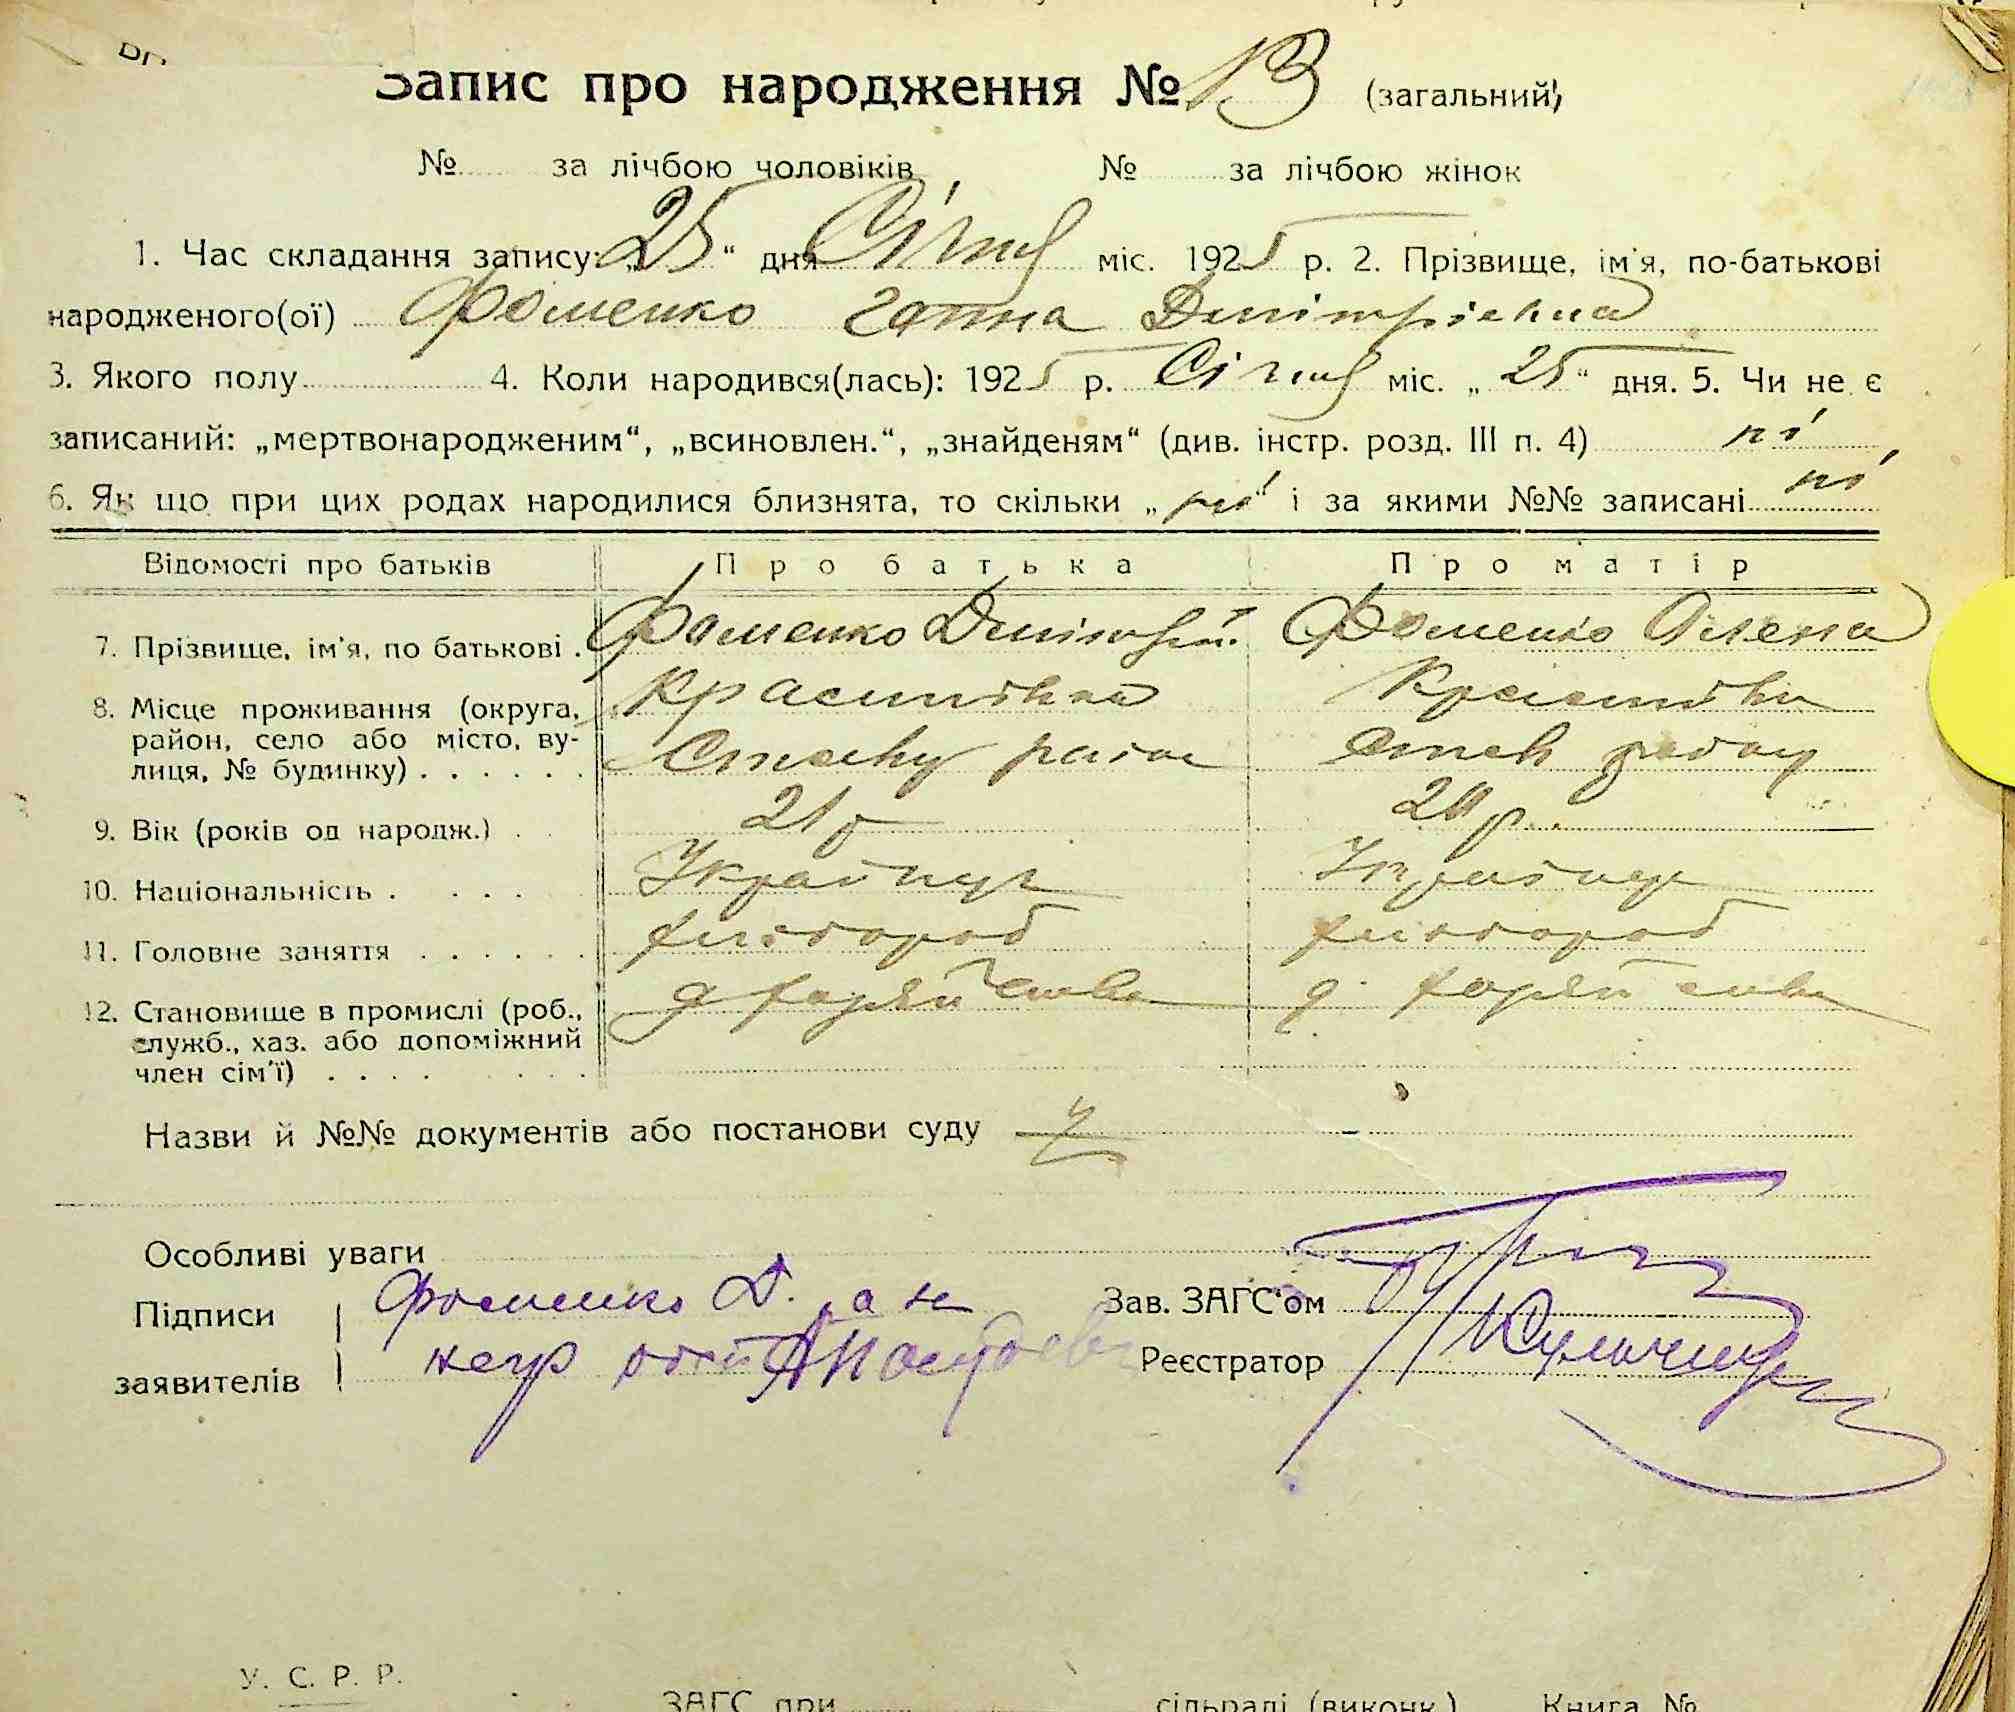 Запис про народження № 13 (загальний)
№ за лічбою чоловіків № за лічбою жінок
1. Час складання запису: „25“ дня Січня міс. 1925 р. 2. Прізвище, ім'я, по-батькові
народженого(ої) Фоменко Ганна Дмитрієвна
3. Якого полу 4. Коли народився(лась): 1925 р. Січня міс. „25“ дня. 5. Чи не є
записаний: „мертвонародженим“, „всиновлен.“, „знайденям“ (див. інстр. розд. III п. 4) ні
6. Як що при цих родах народилися близнята, то скільки „ні“ і за якими №№ записані ні
Відомості про батьків Про батька Про матір
7. Прізвище, ім'я, по батькові . Фоменко Фоменко Олена
8. Місце проживання (округа,
район, село або місто, ву-
лиця, № будинку) . . . . . .
9. Вік (років од народж.) . 21 р
10. Національність . . . . Українця
11. Головне заняття . . . . . . хлібороб хлібороб
12. Становище в промислі (роб.,
служб., хаз. або допоміжний
член сім'ї) . . . . . . . .
Назви й №№ документів або постанови суду
Особливі уваги
Підписи Фоменко Д. а за Зав. ЗАГС'ом
заявителів Реєстратор
У. С. Р. Р.
ЗАГС при сільраді (виконк.) Книга №